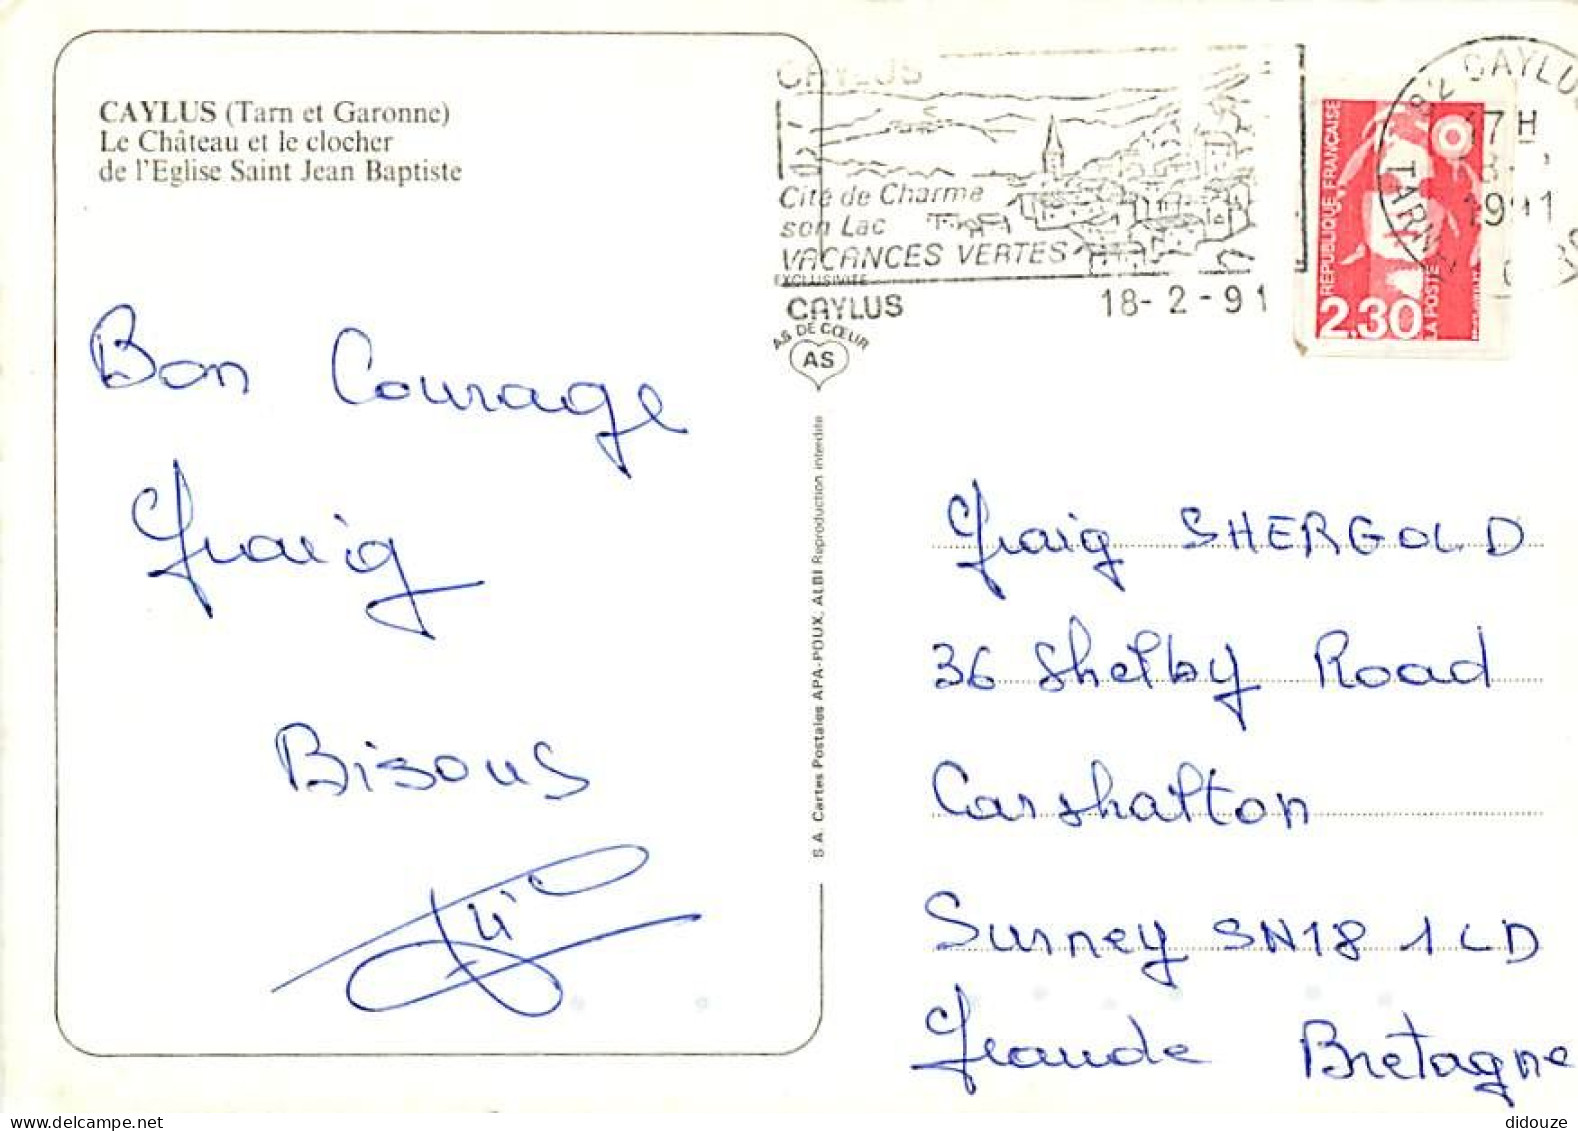 CAYLUS (Tarn et Garonne)
Le Château et le clocher
de l'Eglise Saint Jean Baptiste
Bon Courage
Graig
Bisous
CAYLUS
Cité de Charme
son Lac
VACANCES VERTES
EXCLUSIVITE
CAYLUS
18-2-91
AS DE CŒUR
AS
S.A. Cartes Postales APA-POUX, ALBI Reproduction interdite
82 CAYLUS
17H
1991
TARN
REPUBLIQUE FRANCAISE
LA POSTE
2,30
Graig SHERGOLD
36 Shelby Road
Carshalton
Surney SN18 1LD
Grande Bretagne
didouze